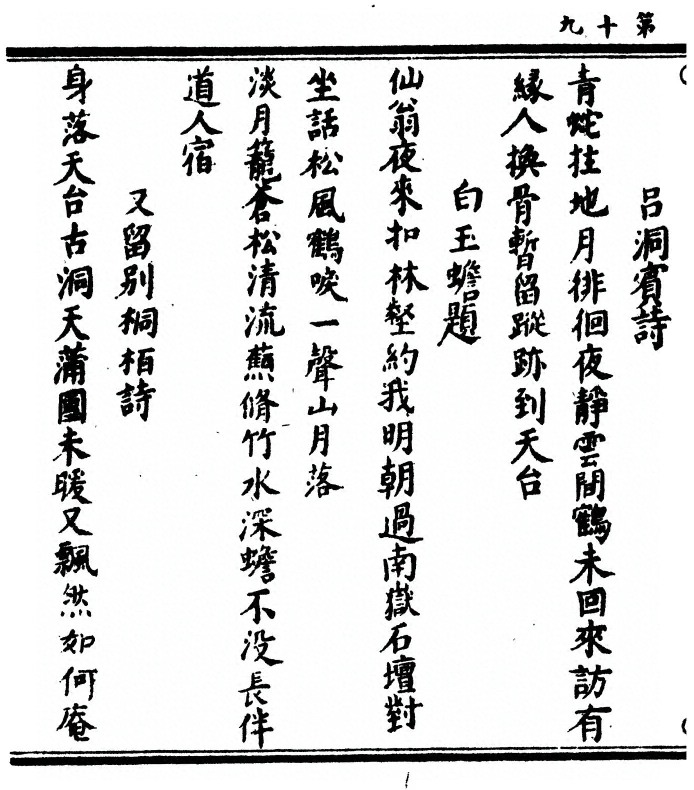 第十九
吕洞賓詩
青蛇拄地月徘徊夜靜雲間鶴未回來訪有
緣人換骨暫留蹤跡到天台
白玉蟾題
仙翁夜來扣林壑約我明朝過南嶽石壇對
坐話松風鶴唳一聲山月落
淡月籠蒼松清流蘸脩竹水深蟾不没長伴
道人宿
又留别桐栢詩
身落天台古洞天蒲團未暖又飄然如何庵